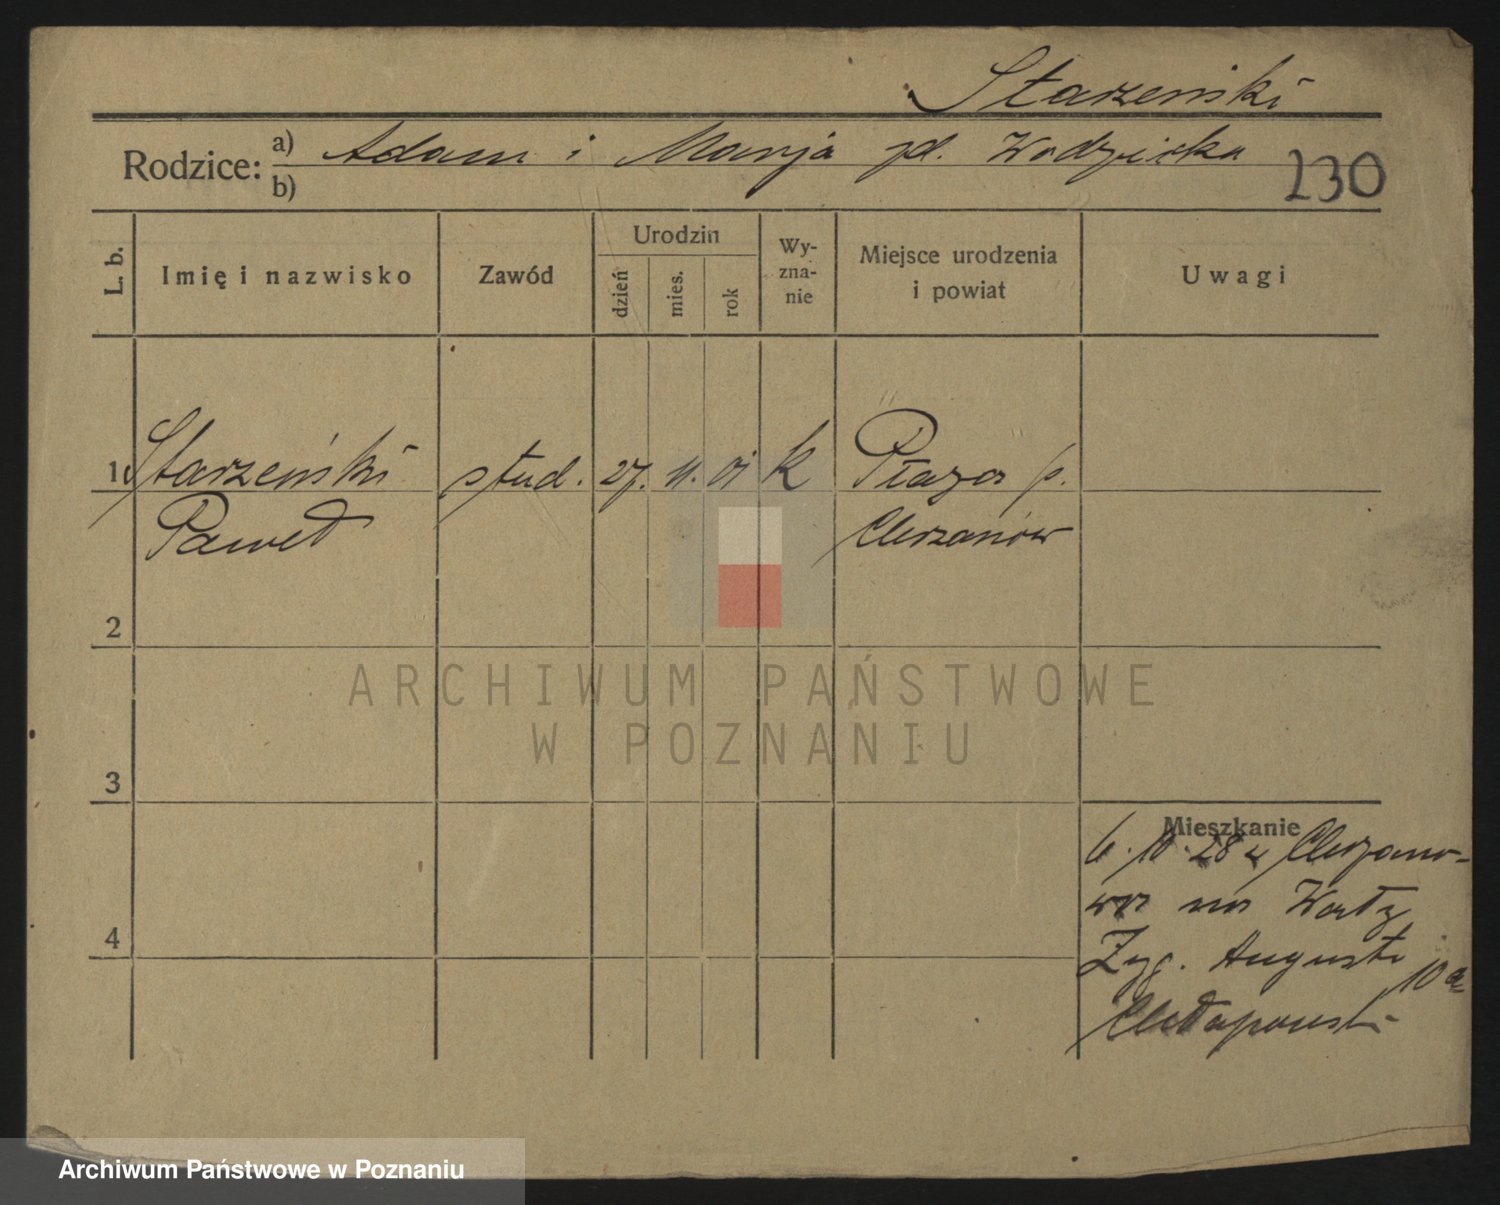 Starzeński
Rodzice: a) Adam i Marja zd. Wodzicka
b)
130
L. b.
Imię i nazwisko
Zawód
Urodzin
dzień
mies.
rok
Wy-
zna-
nie
Miejsce urodzenia
i powiat
Uwagi
1 Starzeński stud. 27. 11. 01 k Płaza p.
Paweł Chrzanów
2
3
4
Mieszkanie
6.10.28 z Chrzano-
wa
Zyg. Augusta 10a
Chłapowski
ARCHIWUM PAŃSTWOWE
W POZNANIU
Archiwum Państwowe w Poznaniu